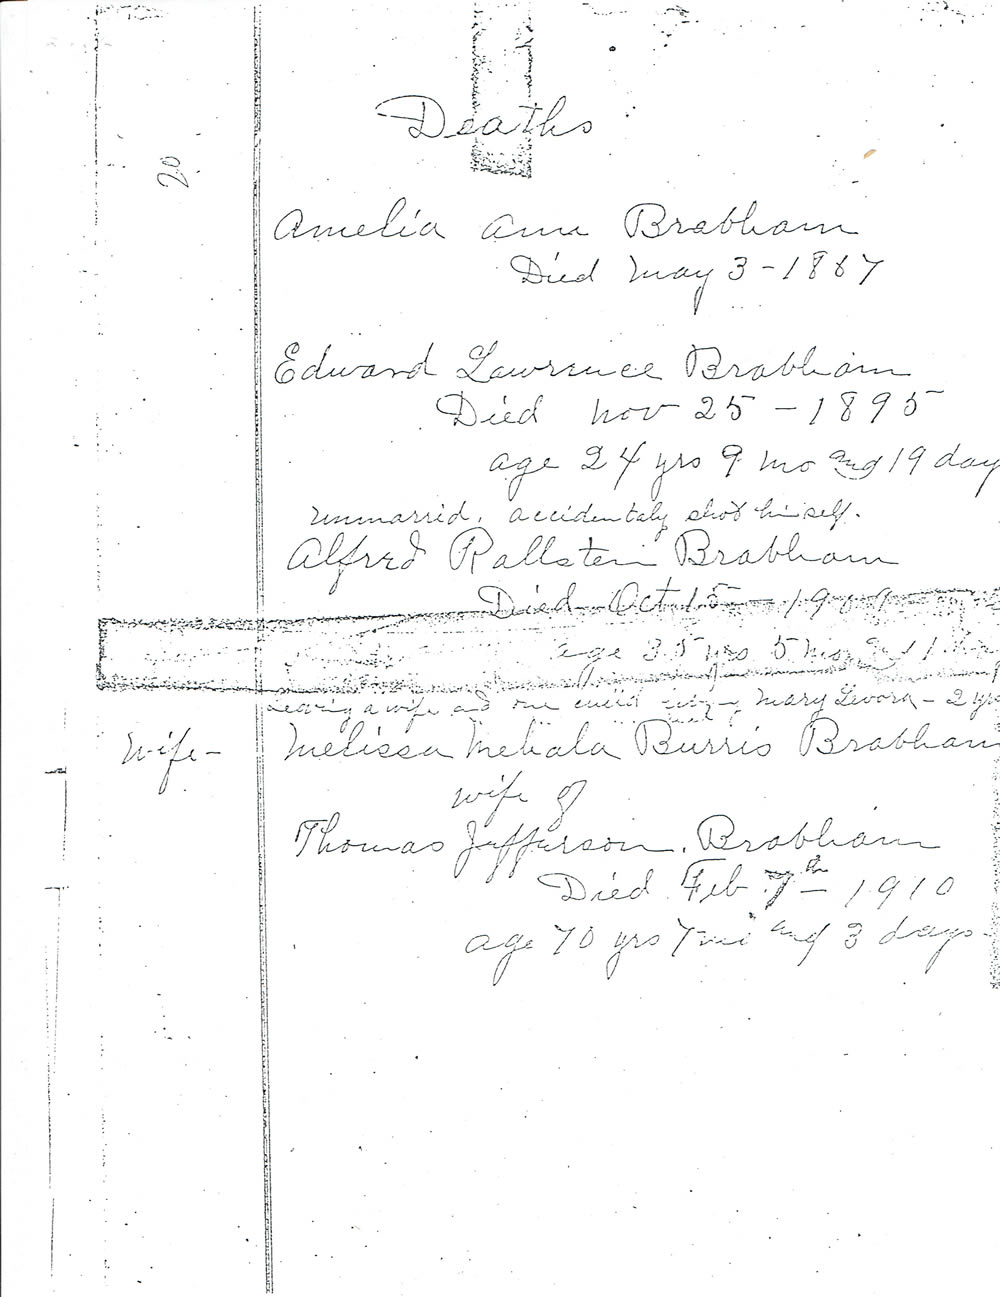 Deaths
20
Amelia Ann Brabham
Died May 3 - 1867
Edward Lawrence Brabham
Died Nov 25 - 1895
age 24 yrs 9 mo and 19 day
unmarrid. accidentaly shot himself.
Alfred Rallstein Brabham
Died Oct 15 - 1909
age 35 yrs 5 mos
Leaving a wife and one child Mary - 2 yrs
Wife - Melissa Mehala Burris Brabham
wife of
Thomas Jefferson. Brabham
Died Feb 7th - 1910
age 70 yrs 7 mo and 3 days -